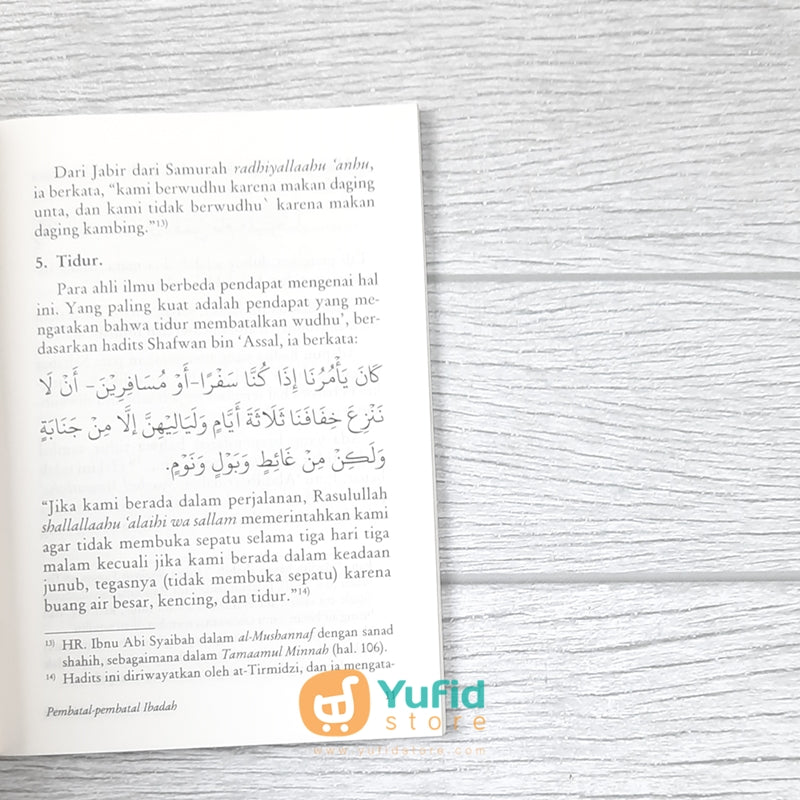 Dari Jabir dari Samurah radhiyallaahu ‘anhu,
ia berkata, “kami berwudhu karena makan daging
unta, dan kami tidak berwudhu` karena makan
daging kambing.”13)
5. Tidur.
Para ahli ilmu berbeda pendapat mengenai hal
ini. Yang paling kuat adalah pendapat yang me-
ngatakan bahwa tidur membatalkan wudhu’, ber-
dasarkan hadits Shafwan bin ‘Assal, ia berkata:
كَانَ يَأْمُرُنَا إِذَا كُنَّا سَفْرًا-أَوْ مُسَافِرِيْنَ- أَنْ لَا
نَنْزِعَ خِفَافَنَا ثَلَاثَةَ أَيَّامٍ وَلَيَالِيْهِنَّ إِلَّا مِنْ جَنَابَةٍ
وَلَكِنْ مِنْ غَائِطٍ وَبَوْلٍ وَنَوْمٍ.
“Jika kami berada dalam perjalanan, Rasulullah
shallallaahu ‘alaihi wa sallam memerintahkan kami
agar tidak membuka sepatu selama tiga hari tiga
malam kecuali jika kami berada dalam keadaan
junub, tegasnya (tidak membuka sepatu) karena
buang air besar, kencing, dan tidur.”14)
13) HR. Ibnu Abi Syaibah dalam al-Mushannaf dengan sanad
shahih, sebagaimana dalam Tamaamul Minnah (hal. 106).
14) Hadits ini diriwayatkan oleh at-Tirmidzi, dan ia mengata-
Pembatal-pembatal Ibadah
Yufid
store
www.yufidstore.com